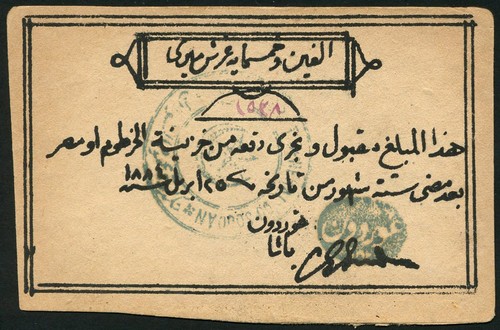 الفين وخمسماية غرش ميرى
١٥٣٨
هذا المبلغ مقبول وتجرى دفعه من خزينة الخرطوم او مصر
بعد مضى ستة شهور من تاريخه ٢٥ ابريل سنة ١٨٨٤
غوردون
باشا
غوردون
SOUDAN